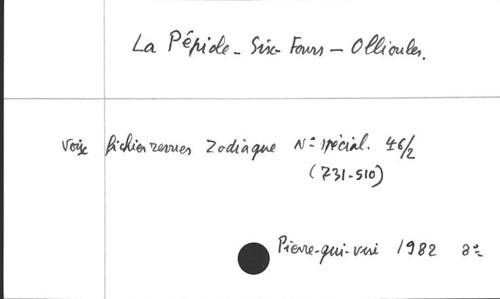 La Pépiole - Six-Fours - Ollioules.
Voir fichier revues Zodiaque N° spécial. 46/2
(731-510)
Pierre-qui-vire 1982 8°